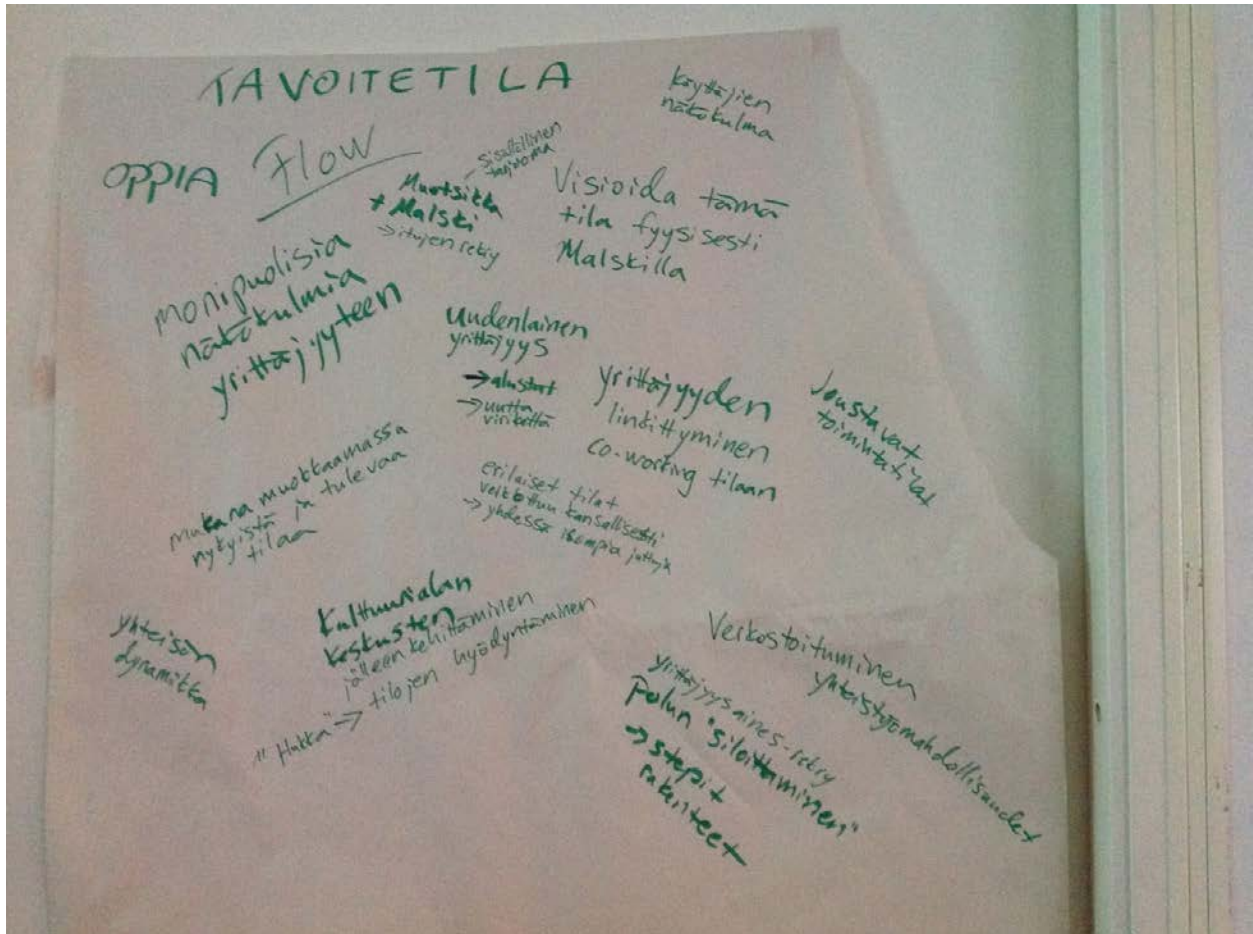 TAVOITETILA
OPPIA Flow
Käyttäjien
näkökulma
sisällöllinen
Muotsikka
+ Malski
Visioida tämä
tila fyysisesti
Malskilla
monipuolisia
näkökulmia
yrittäjyyteen
Uudenlainen
yrittäjyys
→ alustat
→ uutta
virikettä
yrittäjyyden
linkittyminen
co-working tilaan
Joustavat
toimintatilat
mukana muokkaamassa
nykyistä ja tulevaa
tilaa
erilaiset tilat
kansallisesti
→ yhdessä isompia juttuja
yhteisön
dynamiikka
Kulttuurialan
keskusten
jälleen kehittäminen
"Hukka" → tilojen hyödyntäminen
Verkostoituminen
yhteistyömahdollisuudet
yrittäjyysaines-rekry
Polun "siloittaminen"
→ stepit
rakenteet